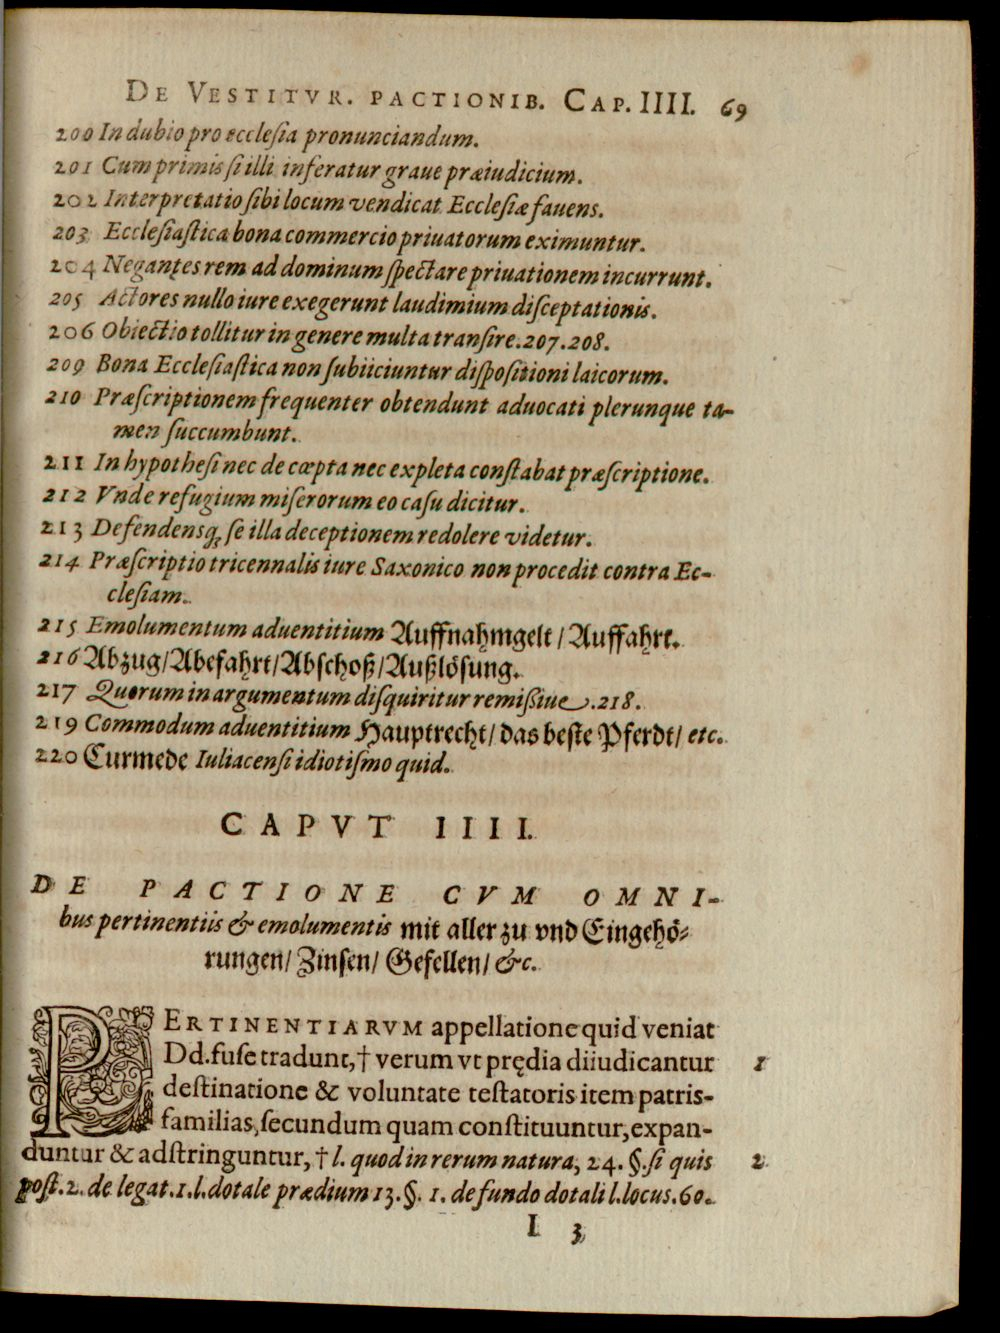 DE VESTITVR. PACTIONIB. CAP. IIII. 69
200 In dubio pro ecclesia pronunciandum.
201 Cum primis si illi inferatur graue præiudicium.
202 Interpretatio sibi locum vendicat Ecclesiæ fauens.
203 Ecclesiastica bona commercio priuatorum eximuntur.
204 Negantes rem ad dominum spectare priuationem incurrunt.
205 Actores nullo iure exegerunt laudimium disceptationis.
206 Obiectio tollitur in genere multa transire. 207. 208.
209 Bona Ecclesiastica non subiiciuntur dispositioni laicorum.
210 Præscriptionem frequenter obtendunt aduocati plerunque ta-
men succumbunt.
211 In hypothesi nec de cœpta nec expleta constabat præscriptione.
212 Vnde refugium miserorum eo casu dicitur.
213 Defendensq; se illa deceptionem redolere videtur.
214 Præscriptio tricennalis iure Saxonico non procedit contra Ec-
clesiam.
215 Emolumentum aduentitium Auffnahmgelt/Auffahrt.
216 Abzug/Abefahrt/Abschoß/Außlösung.
217 Quorum in argumentum disquiritur remißiue. 218.
219 Commodum aduentitium Hauptrecht/das beste Pferdt/ etc.
220 Curmede Iuliacensi idiotismo quid.
CAPVT IIII.
DE PACTIONE CVM OMNI-
bus pertinentiis & emolumentis mit aller zu vnd Eingehö-
rungen/ Zinsen/ Gefellen/ &c.
PERTINENTIARVM appellatione quid veniat
Dd. fuse tradunt, † verum vt prędia diiudicantur 1
destinatione & voluntate testatoris item patris-
familias, secundum quam constituuntur, expan-
duntur & adstringuntur, † l. quod in rerum natura, 24. §. si quis 2
post. 2. de legat. 1. l. dotale prædium 13. §. 1. de fundo dotali l. locus. 60.
I 3